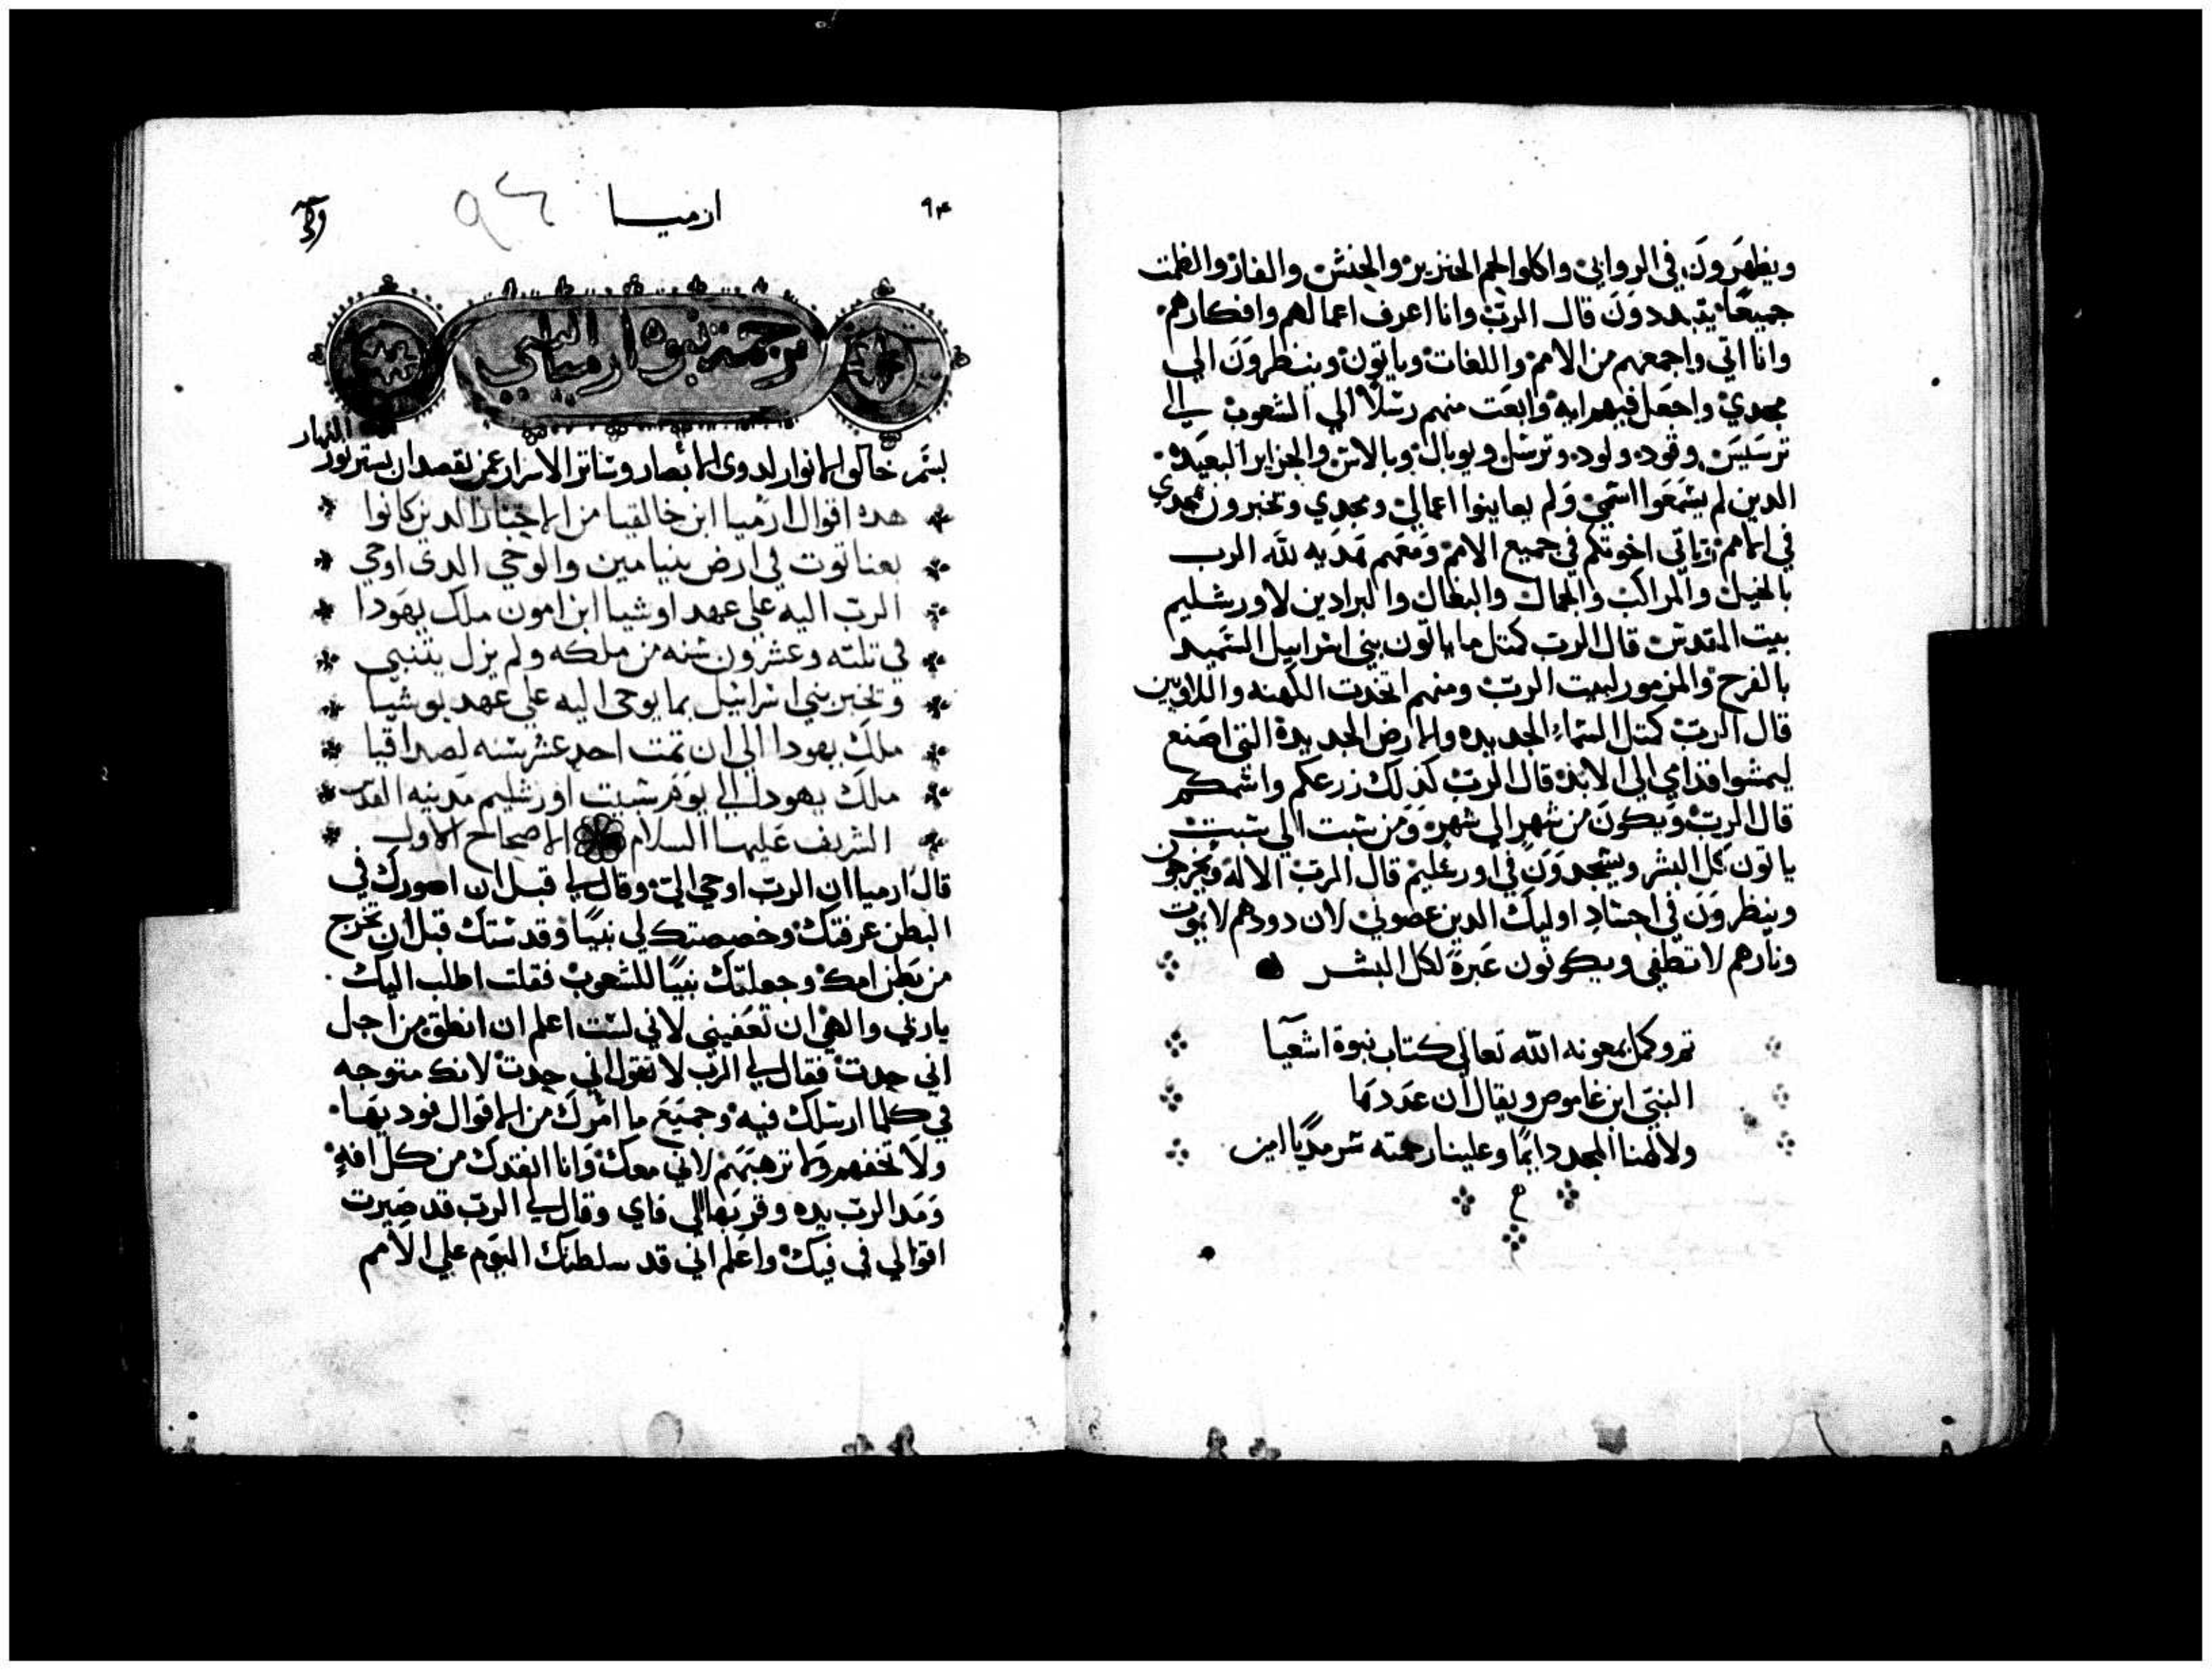 ويظهرون في الروابي واكلوا لحم الخنزير والجنش والفار والظمت
جميعًا يتبددون قال الرب وانا اعرف اعمالهم وافكارهم
وانا اتي واجمعهم من الامم واللغات وياتون وينظرون الي
مجدي واجعل فيهم ايه وابعت منهم رسلًا الي الشعوب الي
ترسيس وفود ولود وترسل ويوبال وبالاس والجزاير البعيده
الدين لم يسمعوا اسمي ولم يعاينوا اعمالي ومجدي وتخبرون بمجدي
في الامم وياتي اخوتكم في جميع الامم ومعهم هديه لله الرب
بالخيل والمراكب والجمال والبغال والبرادين لاورشليم
بيت المقدس قال الرب كمتل ما ياتون بني اسراييل السميد
بالفرح والمزمور لبيت الرب ومنهم اتخدت الكهنه واللاويين
قال الرب كمتل السماء الجديده والارض الجديدة التي اصنع
ليمشوا قدامي الي الابد قال الرب كذلك زرعكم واسمكم
قال الرب ويكون من شهر الي شهر ومن سبت الي سبت
ياتون كل البشر ويسجدون في اورشليم قال الرب الاله ويخرجون
وينظرون في اجساد اوليك الدين عصوني لان دودهم لا يموت
ونارهم لا تطفي ويكونون عبرة لكل البشر
تم وكمل بمعونه الله تعالي كتاب نبوة اشعيا
النبي ابن غاموص ويقال ان عددها
ولالهنا المجد دايمًا وعلينا رحمته سرمديًا امين
٩٤
ارميا
٩٤
ترجمة نبوة ارميا النبي
بسم خالق الانوار لدوي الابصار وساتر الاسرار عمن يقصد ان يستر نور النهار
هده اقوال ارميا ابن خالقيا من الاحبار الدين كانوا
بعناتوت في ارض بنيامين والوحي الدي اوحي
الرب اليه علي عهد اوشيا ابن امون ملك يهودا
في تلته وعشرون سنه من ملكه ولم يزل يتنبي
وتخبر بني اسرائيل بما يوحي اليه علي عهد يوشيا
ملك يهودا الي ان تمت احد عشر سنه لصداقيا
ملك يهودا الي يوم سبيت اورشليم مدينه القدس
الشريف عليها السلام الاصحاح الاول
قال ارميا ان الرب اوحي الي وقال لي قبل ان اصورك في
البطن عرفتك وخصصتك لي نبيًا وقدستك قبل ان تخرج
من بطن امك وجعلتك نبيًا للشعوب فقلت اطلب اليك
يا ربي والهي ان تعفيني لاني لست اعلم ان انطق من اجل
اني حدت فقال لي الرب لا تقول اني حدت لانك متوجه
في كلما ارسلك فيه وجميع ما امرك من الاقوال فود بها
ولا تخفهم ولا ترهبهم لاني معك وانا انقدك من كل افه
ومد الرب يده وقربها الي فاي وقال لي الرب قد صيرت
اقوالي في فيك واعلم اني قد سلطتك اليوم علي الامم